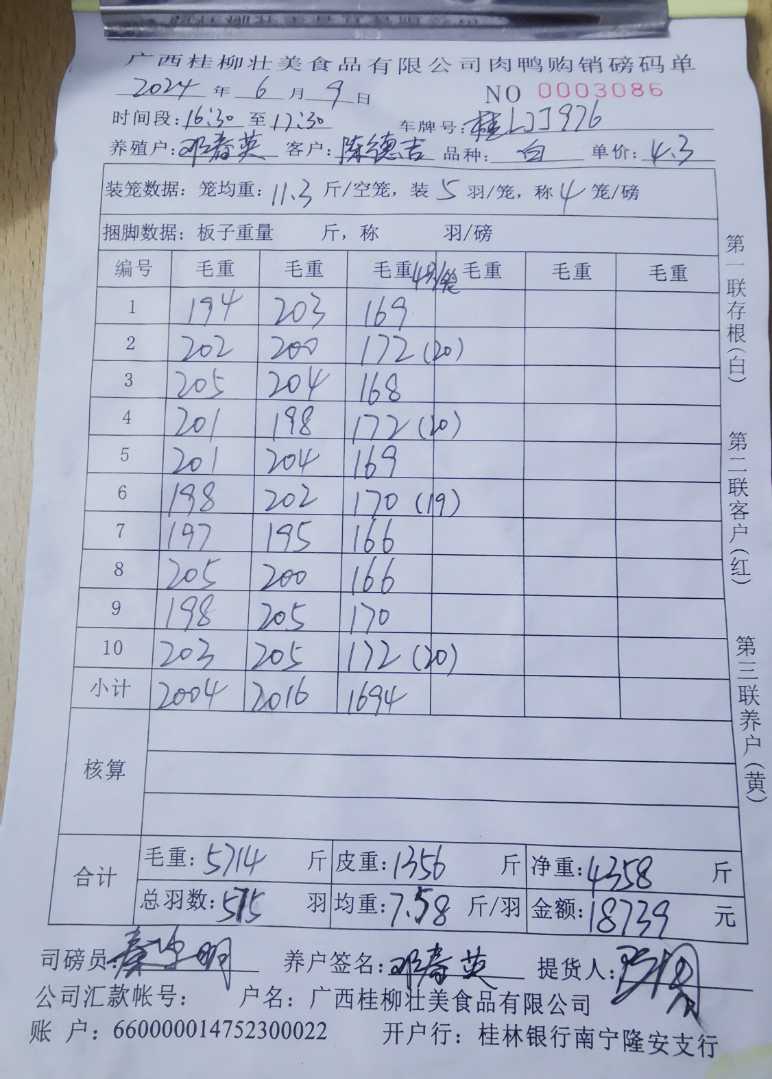 广西桂柳壮美食品有限公司肉鸭购销磅码单
2024年6月9日 NO 0003086
时间段:16:30至17:30 车牌号:桂LJJ976
养殖户:邓春英 客户:陈德吉 品种:白 单价:4.3
装笼数据:笼均重:11.3斤/空笼,装5羽/笼,称4笼/磅
捆脚数据:板子重量 斤,称 羽/磅
编号 毛重 毛重 毛重 4羽/笼 毛重 毛重 毛重
1 194 203 169
2 202 200 172(20)
3 205 204 168
4 201 198 172(20)
5 201 204 169
6 198 202 170(19)
7 197 195 166
8 205 200 166
9 198 205 170
10 203 205 172(20)
小计 2004 2016 1694
核算
合计 毛重:5714斤 皮重:1356斤 净重:4358斤
总羽数:575羽 均重:7.58斤/羽 金额:18739元
司磅员: 养户签名:邓春英 提货人:
公司汇款帐号: 户名:广西桂柳壮美食品有限公司
账 户:660000014752300022 开户行:桂林银行南宁隆安支行
第一联存根(白) 第二联客户(红) 第三联养户(黄)